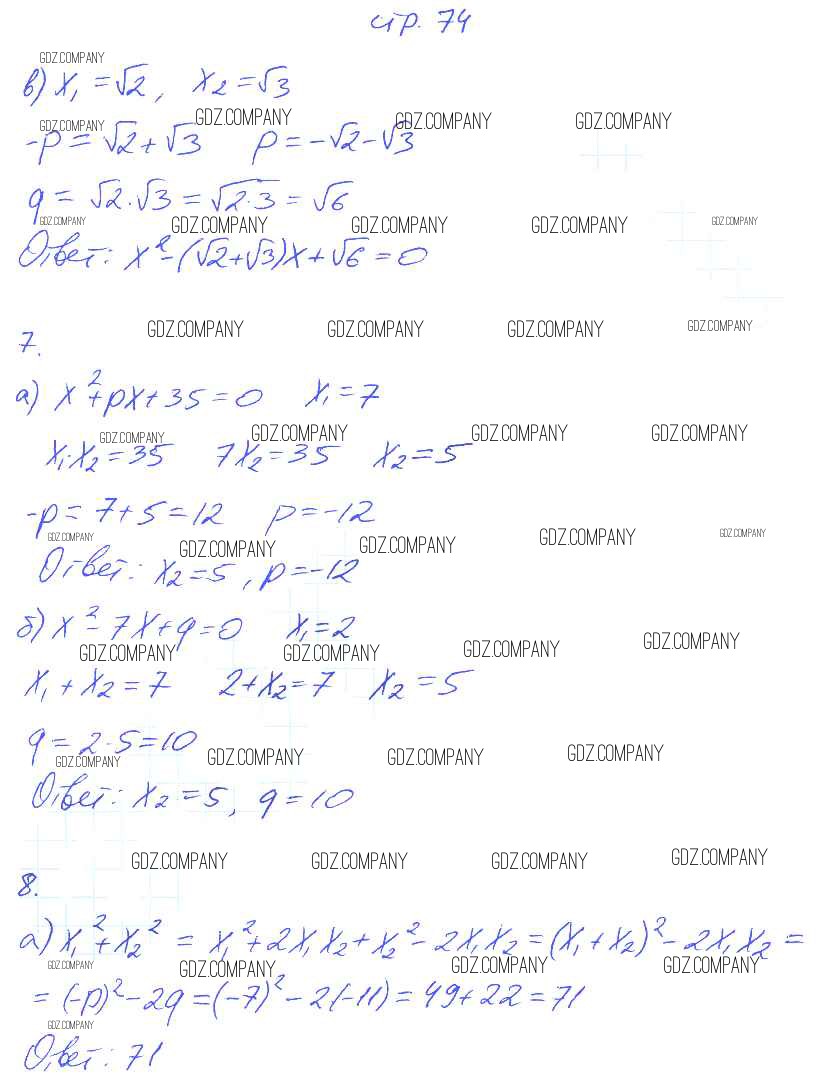 стр. 74
GDZ.COMPANY
в) x₁ = √2, x₂ = √3
GDZ.COMPANY GDZ.COMPANY GDZ.COMPANY GDZ.COMPANY
-p = √2 + √3 p = -√2 - √3
q = √2 · √3 = √2·3 = √6
GDZ.COMPANY GDZ.COMPANY GDZ.COMPANY GDZ.COMPANY GDZ.COMPANY
Ответ: x² - (√2+√3)x + √6 = 0
GDZ.COMPANY GDZ.COMPANY GDZ.COMPANY GDZ.COMPANY
7.
а) x² + px + 35 = 0 x₁ = 7
GDZ.COMPANY GDZ.COMPANY GDZ.COMPANY GDZ.COMPANY
x₁·x₂ = 35 7x₂ = 35 x₂ = 5
-p = 7 + 5 = 12 p = -12
GDZ.COMPANY GDZ.COMPANY GDZ.COMPANY GDZ.COMPANY GDZ.COMPANY
Ответ: x₂ = 5, p = -12
б) x² - 7x + q = 0 x₁ = 2
GDZ.COMPANY GDZ.COMPANY GDZ.COMPANY GDZ.COMPANY
x₁ + x₂ = 7 2 + x₂ = 7 x₂ = 5
q = 2 · 5 = 10
GDZ.COMPANY GDZ.COMPANY GDZ.COMPANY GDZ.COMPANY
Ответ: x₂ = 5, q = 10
GDZ.COMPANY GDZ.COMPANY GDZ.COMPANY GDZ.COMPANY
8.
а) x₁² + x₂² = x₁² + 2x₁x₂ + x₂² - 2x₁x₂ = (x₁ + x₂)² - 2x₁x₂ =
GDZ.COMPANY GDZ.COMPANY GDZ.COMPANY GDZ.COMPANY
= (-p)² - 2q = (-7)² - 2(-11) = 49 + 22 = 71
GDZ.COMPANY
Ответ: 71